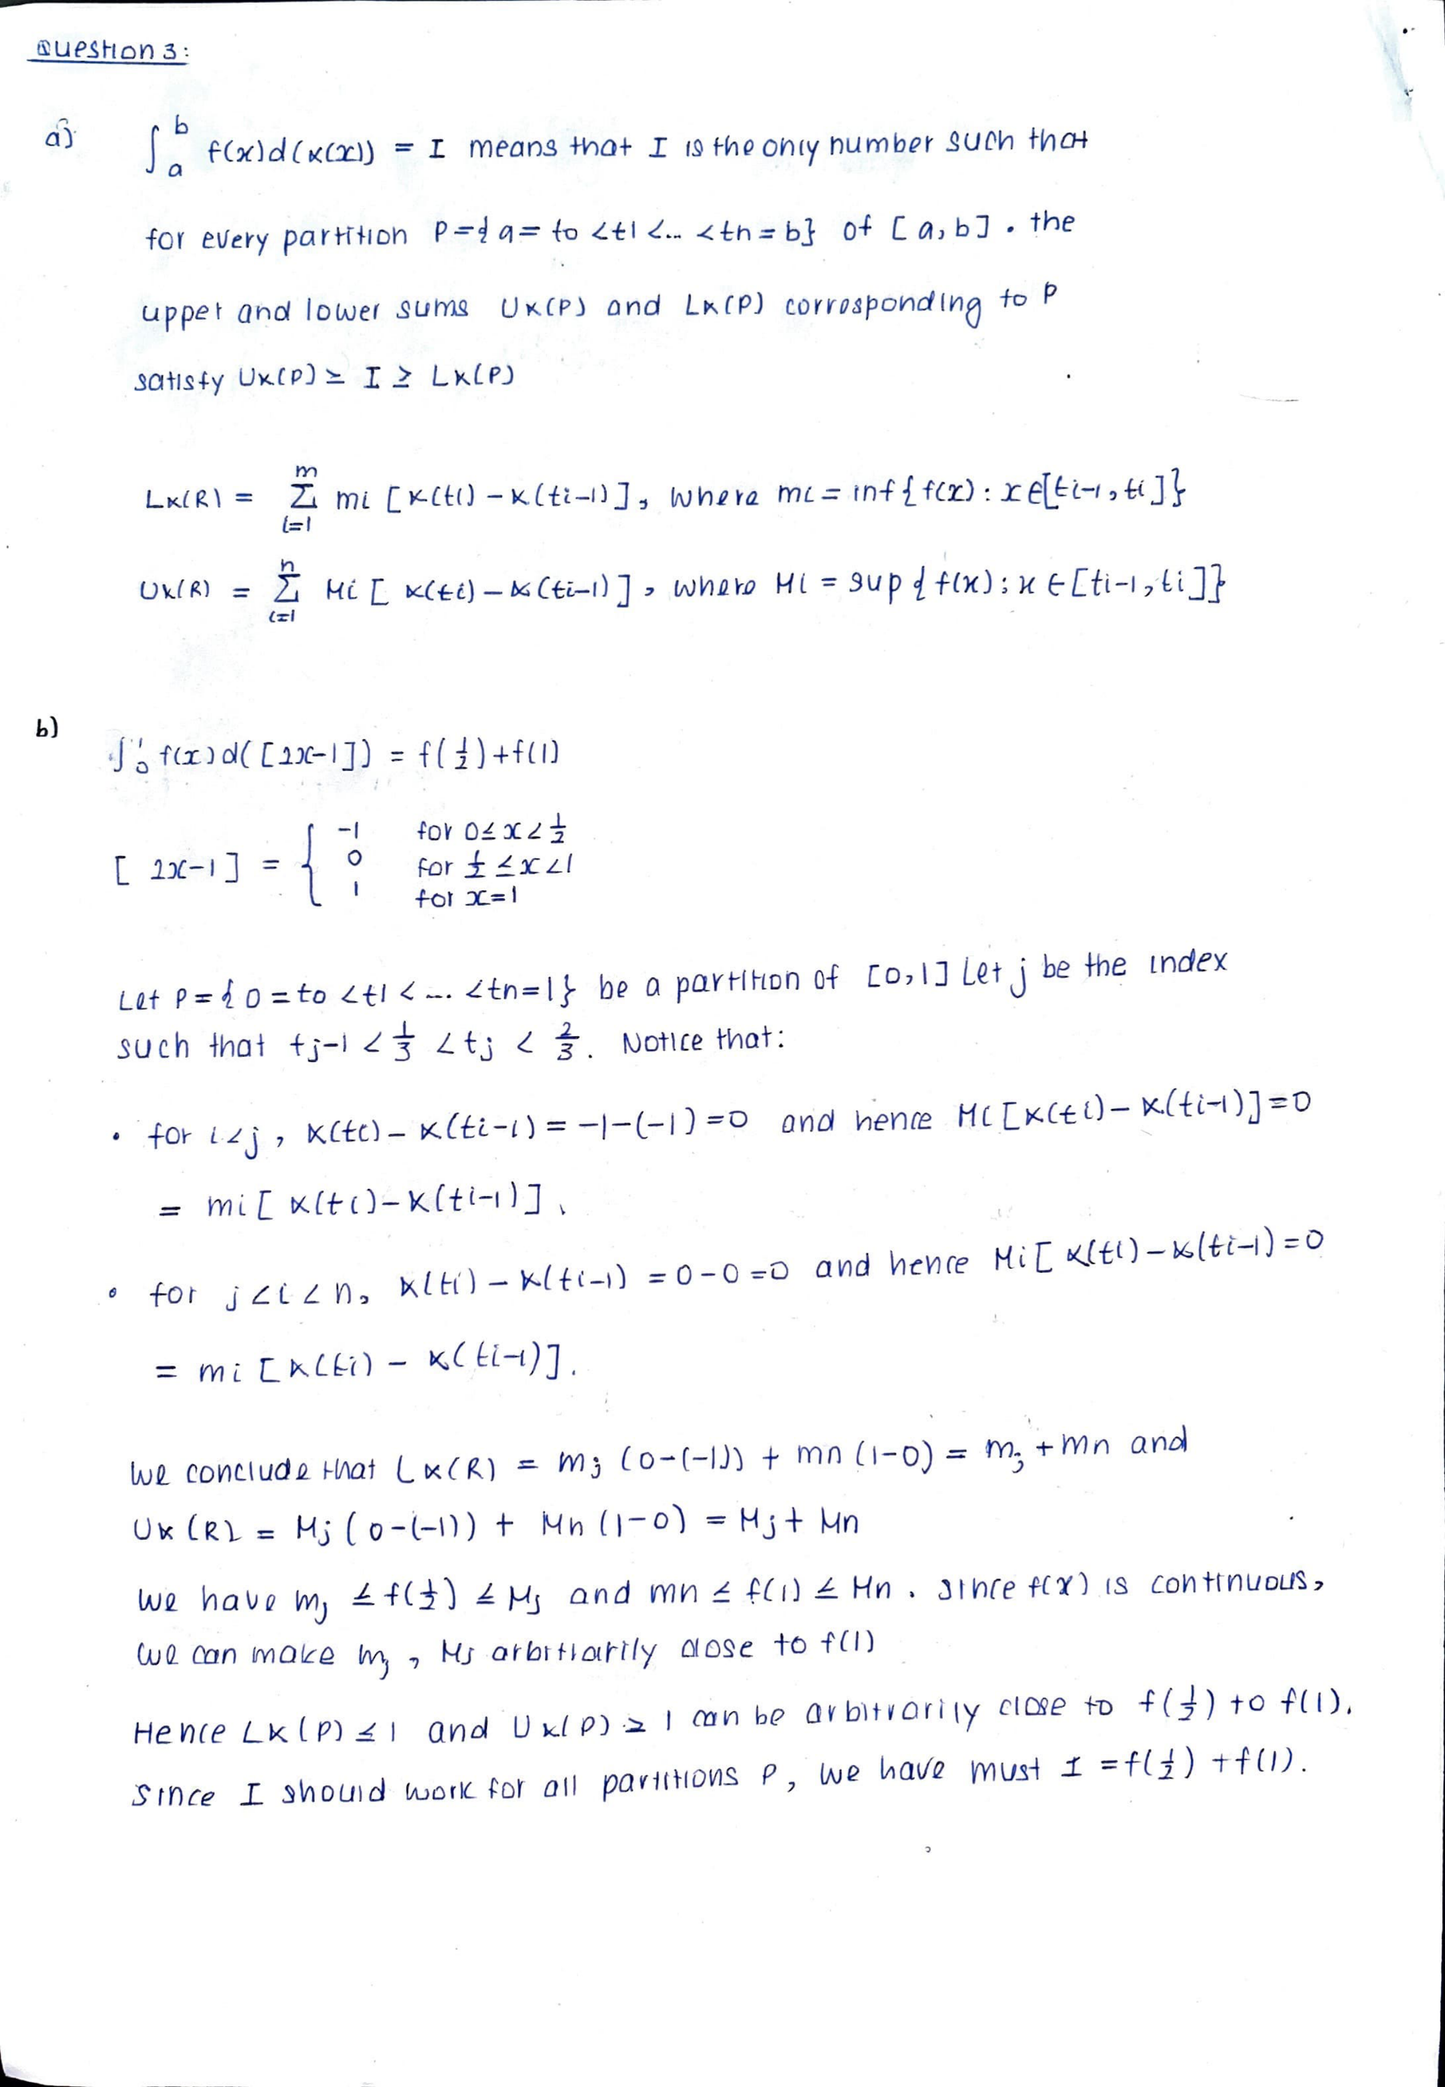 Question 3:
a) ∫ₐᵇ f(x)d(α(x)) = I means that I is the only number such that
for every partition P={a=t0<t1<...<tn=b} of [a,b]. the
upper and lower sums Uα(P) and Lα(P) corrosponding to P
satisfy Uα(P) ≥ I ≥ Lα(P)
Lα(R) = m Σ i=1 mi [α(ti) – α(ti–1)], where mi = inf{f(x) : x∈[ti–1, ti]}
Uα(R) = n Σ i=1 Mi [α(ti) – α(ti–1)], where Mi = sup{f(x); x∈[ti–1, ti]}
b)
∫₀¹ f(x)d([2x–1]) = f(1/2)+f(1)
[2x–1] = { –1 for 0≤x<1/2
0 for 1/2≤x<1
1 for x=1
Let P={0=t0<t1<...<tn=1} be a partition of [0,1] Let j be the index
such that tj–1 < 1/3 < tj < 2/3. Notice that:
• for i<j, α(ti) – α(ti–1) = –1–(–1)=0 and hence Mi[α(ti)–α(ti–1)]=0
= mi[α(ti)–α(ti–1)].
• for j<i<n, α(ti) – α(ti–1) = 0–0=0 and hence Mi[α(ti)–α(ti–1)=0
= mi[α(ti) – α(ti–1)].
We conclude that Lα(R) = mj (0–(–1)) + mn (1–0) = mj + mn and
Uα(R) = Mj(0–(–1)) + Mn(1–0) = Mj + Mn
We have mj ≤ f(1/2) ≤ Mj and mn ≤ f(1) ≤ Mn. Since f(x) is continuous,
We can make mj, Mj arbitrarily close to f(1)
Hence Lα(P) ≤ I and Uα(P) ≥ I can be arbitrarily close to f(1/2) to f(1).
Since I should work for all partitions P, we have must I = f(1/2) + f(1).